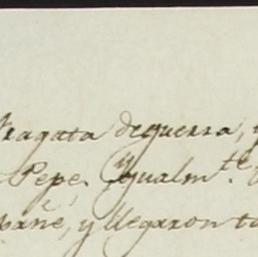 Fragata de guerra, y
Pepe, y ygualm.te
pañé, y llegaron